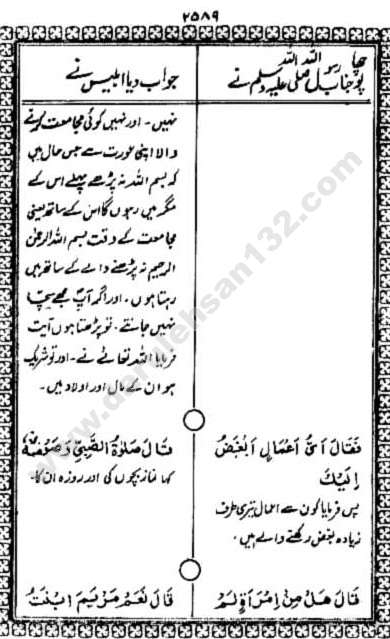 ۲۵۸۹
پوچھا جناب رسول اللہ صلی اللہ علیہ وسلم نے
جواب دیا ابلیس نے
نہیں۔ اور نہیں کوئی مجامعت کرنے
والا اپنی عورت سے جس حال میں
کہ بسم اللہ نہ پڑھے پہلے اس کے
مگر میں رہوں گا اس کے ساتھ یعنی
مجامعت کے وقت بسم اللہ الرحمٰن
الرحیم نہ پڑھنے والے کے ساتھ میں
رہتا ہوں۔ اور اگر آپ مجھے سچا
نہیں جانتے۔ تو پڑھتا ہوں آیت
فرمایا اللہ تعالےٰ نے۔ اور تو شریک
ہو ان کے مال اور اولاد میں۔
فَقَالَ اَیُّ اَعْمَالٍ اَبْغَضُ
اِلَیْكَ
پس فرمایا کون سے اعمال تیری طرف
زیادہ بغض رکھنے والے ہیں۔
قَالَ صَلٰوةُ الصَّبِیِّ وَصَوْمُهٗ
کہا نماز بچوں کی اور روزہ ان کا۔
قَالَ هَلْ مِنْ اِمْرَأَةٍ لَمْ
قَالَ نَعَمْ مَرْیَمَ ابْنَتُ
www.darulehsan132.com